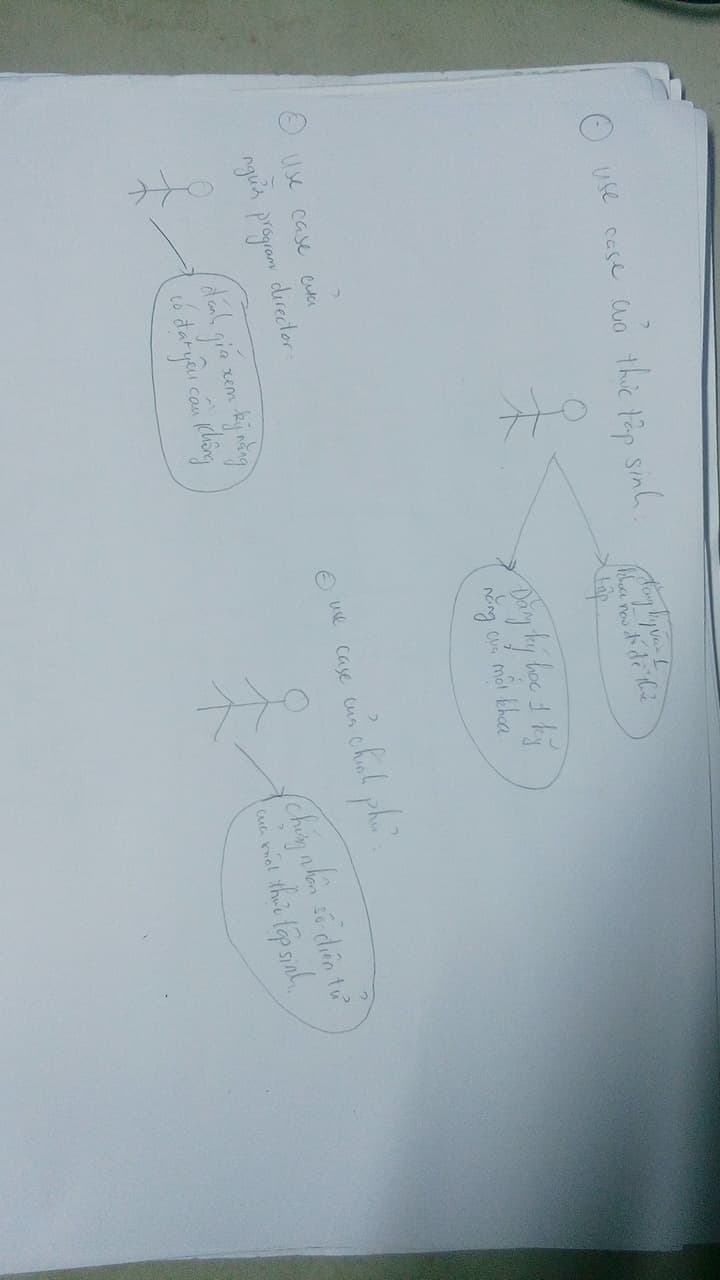 - use case của thực tập sinh:
Đăng ký vào 1
khoa nào đó để thực
tập
Đăng ký học 1 kỹ
năng của một khoa
- use case của
người program director.
đánh giá xem kỹ năng
có đạt yêu cầu không
- use case của chính phủ:
chứng nhận số điện tử
của mỗi thực tập sinh.